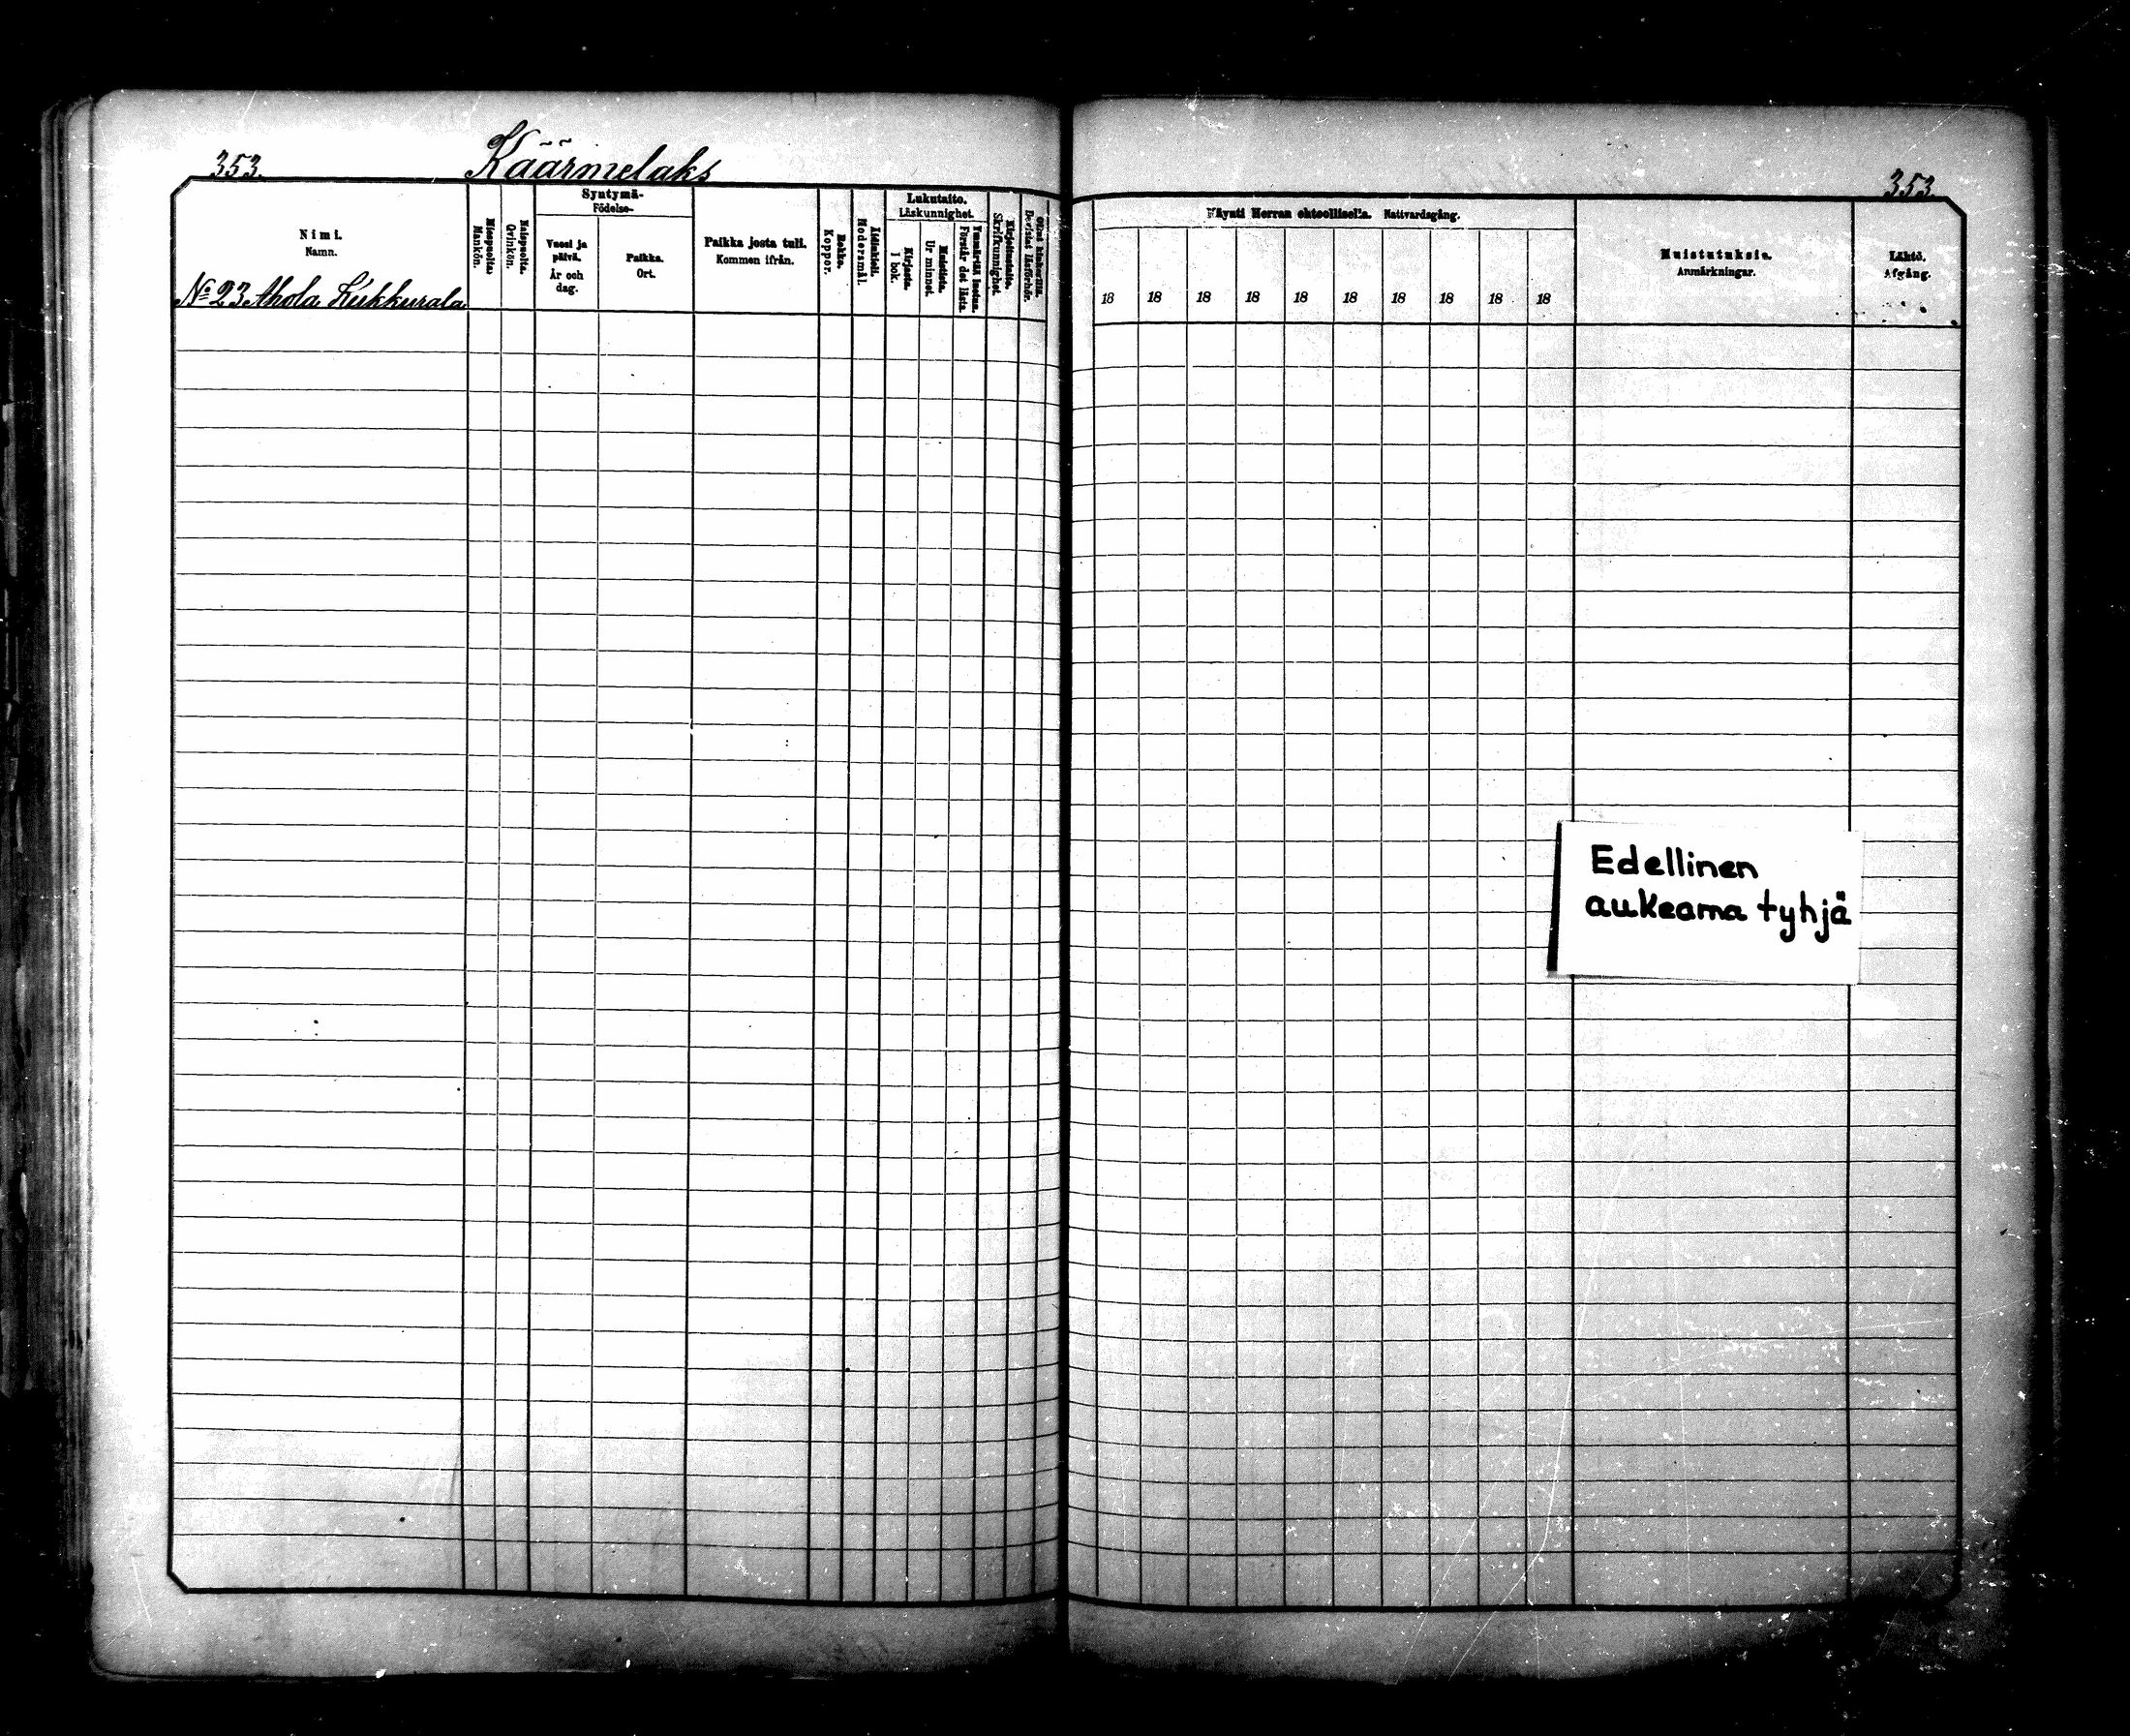 353.
Käärmelaks
353.
Nimi.
Namn.
Miespuolta.
Mankön.
Naispuolta.
Qvinkön.
Syntymä-
Födelse-
Vuosi ja
päivä.
År och
dag.
Paikka.
Ort.
Paikka josta tuli.
Kommen ifrån.
Rokko.
Koppor.
Äitinkieli.
Modersmål.
Lukutaito.
Läskunnighet.
Kirjasta.
I bok.
Muistista.
Ur minnet.
Ymmärtää luetun.
Förstår det lästa.
Kirjoitustaito.
Skrifkunnighet.
Bevistat läsförhör.
Käynti Herran ehtoollisella. Nattvardsgång.
18 18 18 18 18 18 18 18 18 18
Muistutuksia.
Anmärkningar.
Lähtö.
Afgång.
No 23 Ahola
Edellinen
aukeama tyhjä